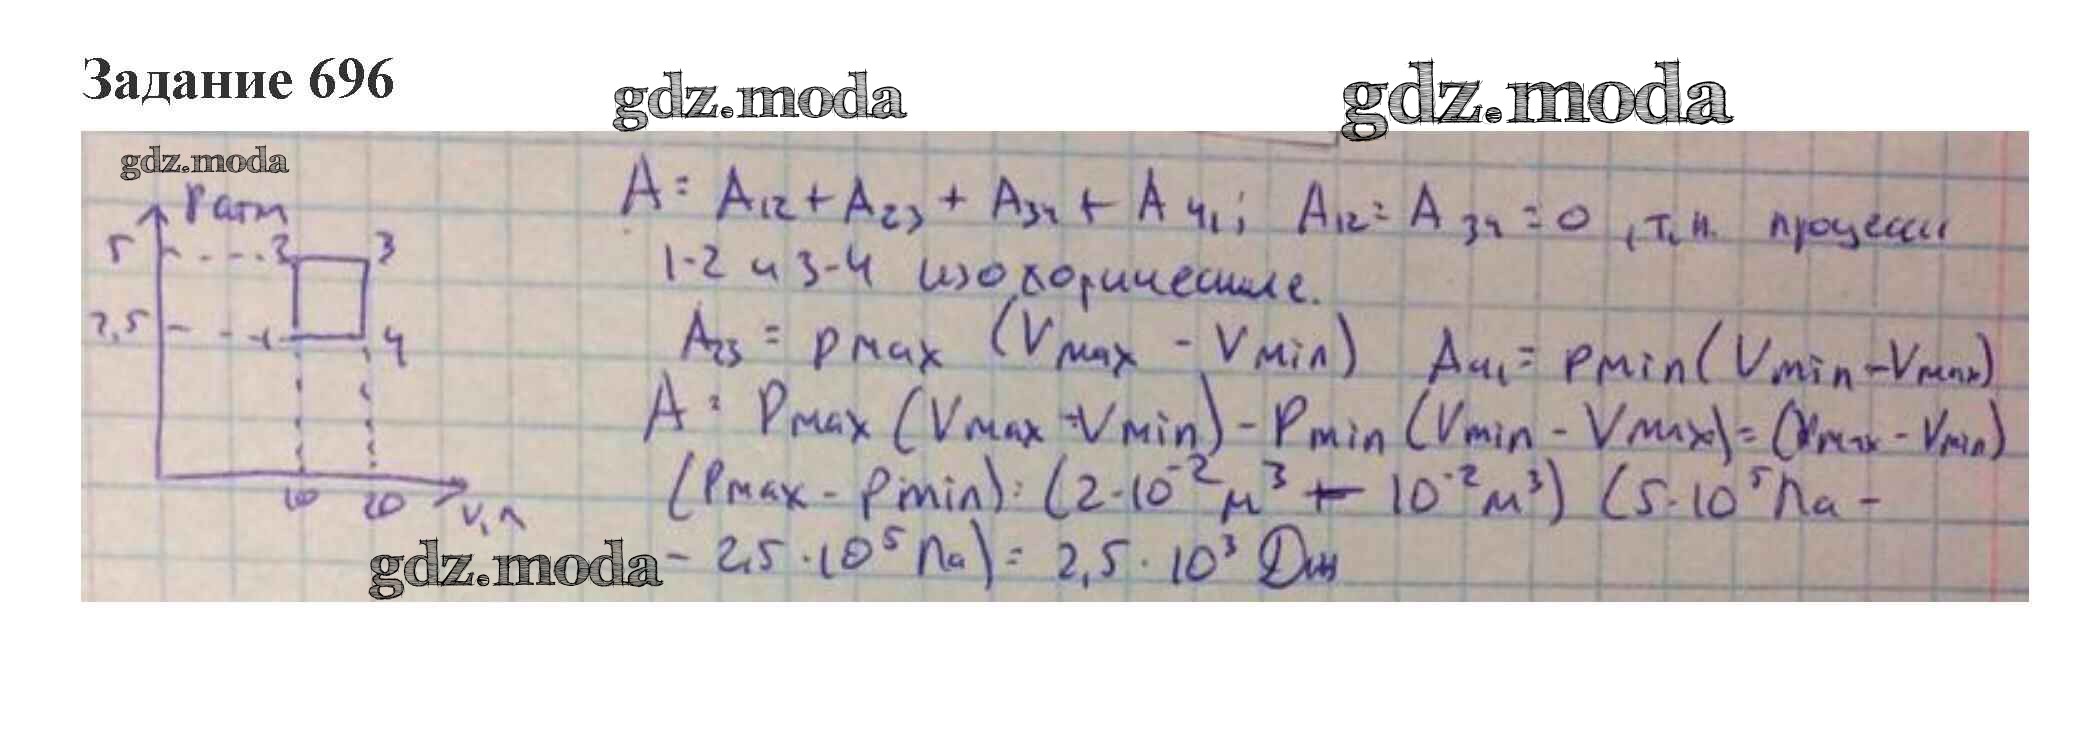 Задание 696
gdz.moda
gdz.moda
gdz.moda
Pатм
5
2
3
2,5
1
4
10
20
V, л
A = A12 + A23 + A34 + A41; A12 = A34 = 0, т.к. процессы
1-2 и 3-4 изохорические.
A23 = pmax (Vmax - Vmin) A41 = pmin (Vmin - Vmax)
A = Pmax (Vmax - Vmin) - Pmin (Vmin - Vmax) = (Vmax - Vmin)
(Pmax - Pmin) = (2·10⁻² м³ - 10⁻² м³) (5·10⁵ Па -
- 2,5·10⁵ Па) = 2,5·10³ Дж
gdz.moda